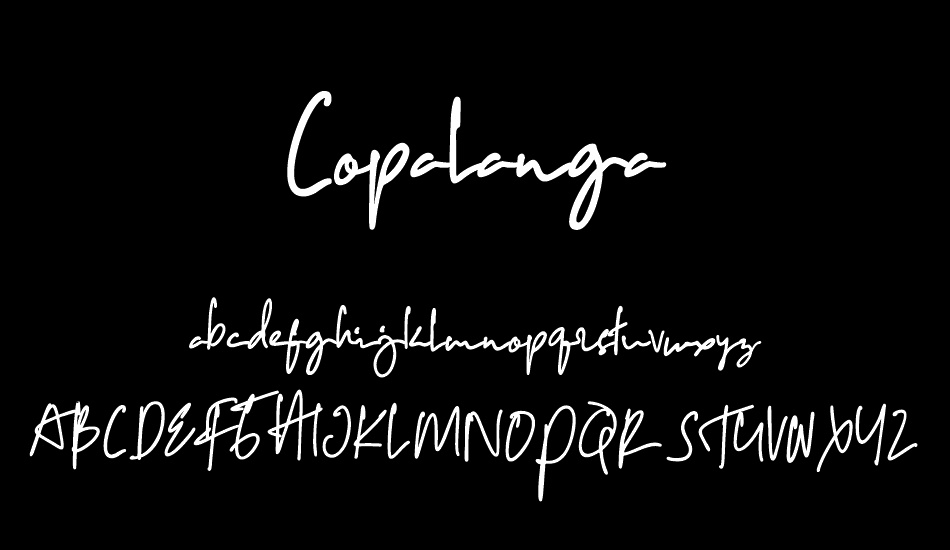 Copalanga
abcdefghijklmnopqrstuvwxyz
ABCDEFGHIJKLMNOPQRSTUVWXYZ